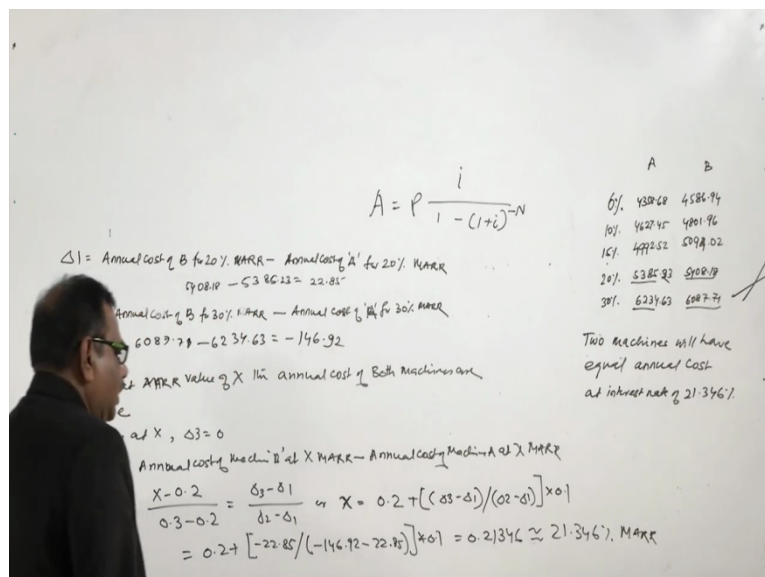 A = P i / 1 - (1+i)^-N
A B
6% 4308.68 4586.94
10% 4627.45 4801.96
15% 4992.52 5098.02
20% 5385.33 5408.18
30% 6234.63 6087.71
Two machines will have
equal annual cost
at interest rate of 21.346%
Δ1 = Annual cost of B for 20% MARR - Annual cost of 'A' for 20% MARR
5408.18 - 5385.33 = 22.85
Annual Cost of B for 30% MARR - Annual Cost of 'A' for 30% MARR
6087.71 - 6234.63 = -146.92
MARR value of X the annual cost of Both Machines are
at X, Δ3 = 0
Annual cost of Machine B' at X MARR - Annual cost of Machine A at X MARR
X-0.2 / 0.3-0.2 = Δ3-Δ1 / Δ2-Δ1 or X = 0.2 + [(Δ3-Δ1)/(Δ2-Δ1)] × 0.1
= 0.2 + [-22.85/(-146.92-22.85)] × 0.1 = 0.21346 ≃ 21.346% MARR